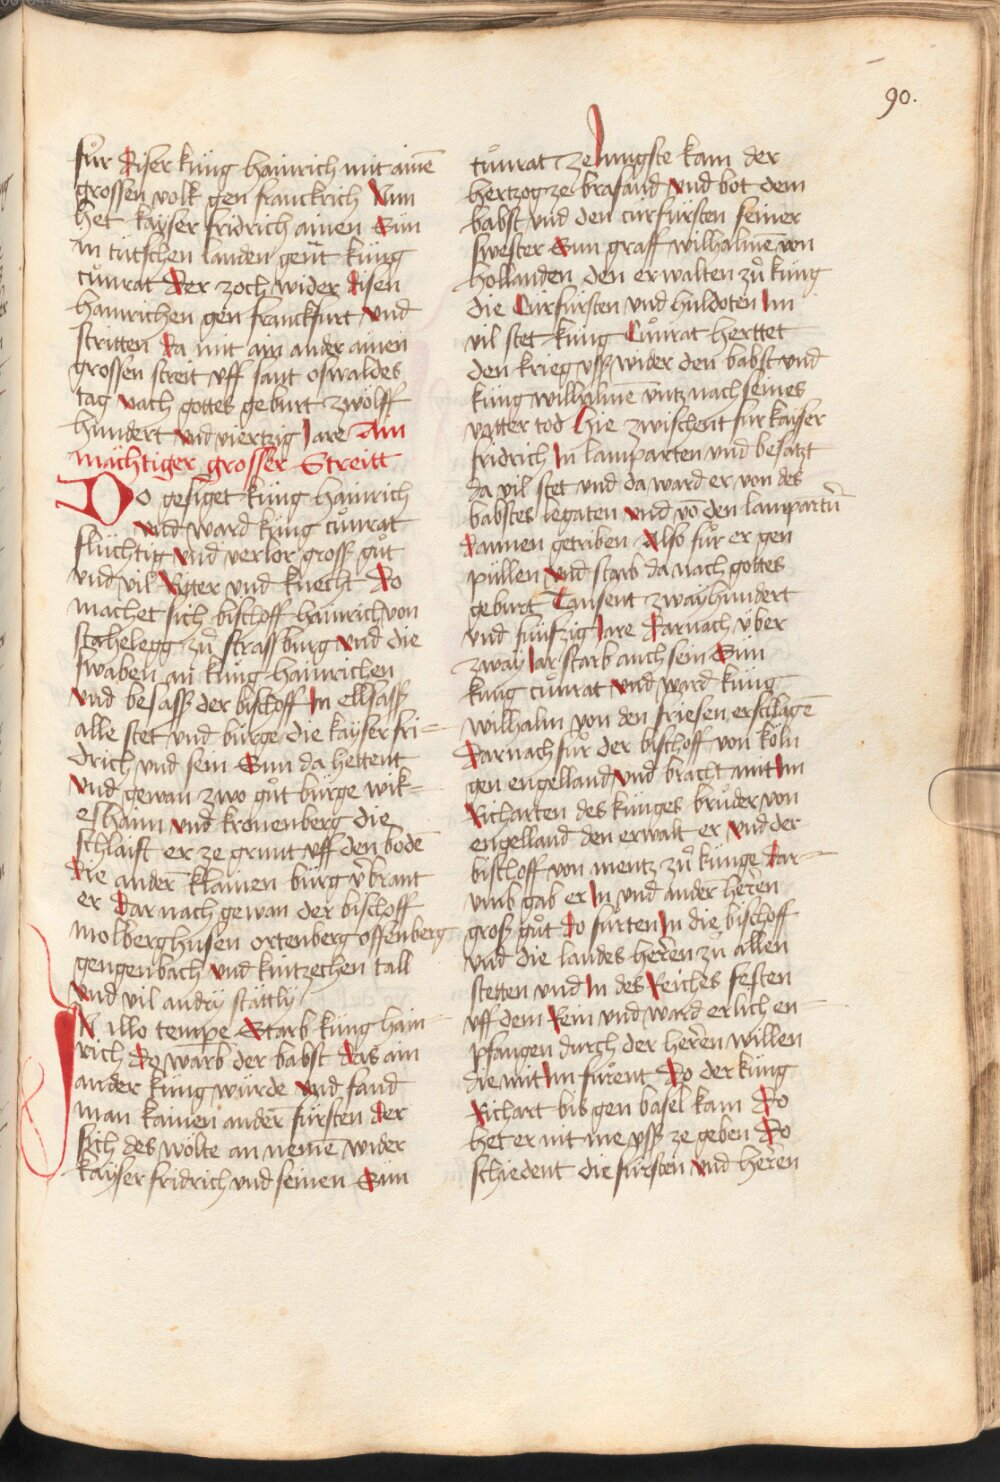 90.
fůr diser küng hainrich mit ainē
grossen volk gen franckrich Nun
het kayser fridrich ainen Sun
in tütschen landen gent küng
cůnrat Der zoch wider disen
hainrichen gen franckfurt und
stritten da mit ain ander ainen
grossen streit vff sant oswaldes
tag nach gottes geburt zwölff
hundert und viertzig Jare Ain
mächtiger grosser Streitt
Do gesiget küng hainrich
und ward küng cůnrat
fluchtig und verlor gross gůt
und vil Ritter und knecht Do
machet sich bischoff hainrich von
stahelegg zů strassburg und die
swaben an küng hainrichen
und besass der bischoff In ellsass
alle stet und bürge die kayser fri=
drich und sein Sun da hettent
und gewan zwo gůt bürge wik=
ershaim und kronenberg die
schlaift er ze grunt vff den bodē
Die andern klainen bürg v̄brant
er Darnach gewan der bischoff
molberghusen ortenberg offenberg
gengenbach und kintzechen tall
und vil andry stättly
IN illo tempe Starb küng hain
rich Do warb der babst das ain
ander küng würde und fand
man kainen andern fürsten der
sich des wölte an nemē wider
kayser fridrich und seinen Sun
cůnrat ze Jungste kam der
hertzog ze brafand und bot dem
babst und den curfürsten seiner
swester Sun graff wilhalmē von
hollanden den erwalten zů küng
die Curfürsten und huldoten Im
vil stet küng Cůnrat herttet
den krieg vss wider den babst und
küng wilhalmē untz nach seines
vatter tod Hie zwischent fur kayser
fridrich In lamparten und besatzt
da vil stet und da ward er von des
babstes legaten und vō den lampartn̄
dannen getriben Also fůr er gen
püllen und starb da nach gottes
geburt Tausent zwayhundert
und fünfzig Jare Darnach über
zway Jar starb auch sein Sun
küng cůnrat und ward küng
wilhalm von den friesen erschlagē
Darnach fůr der bischoff von köln
gen engelland und bracht mit Im
Richarten des künges brůder von
engelland den erwalt er und der
bischoff von mentz zů künge Dar=
umb gab er In und ander herren
gross gůt Do fůrten In die bischoff
und die landes herren zů allen
stetten und In des Reiches festen
vff dem Rein und ward erlich en
pfangen durch der herren willen
die mit Im fůrent Do der küng
Richart bis gen basel kam Do
het er nit me vss ze geben Do
schiedent die fürsten und herren